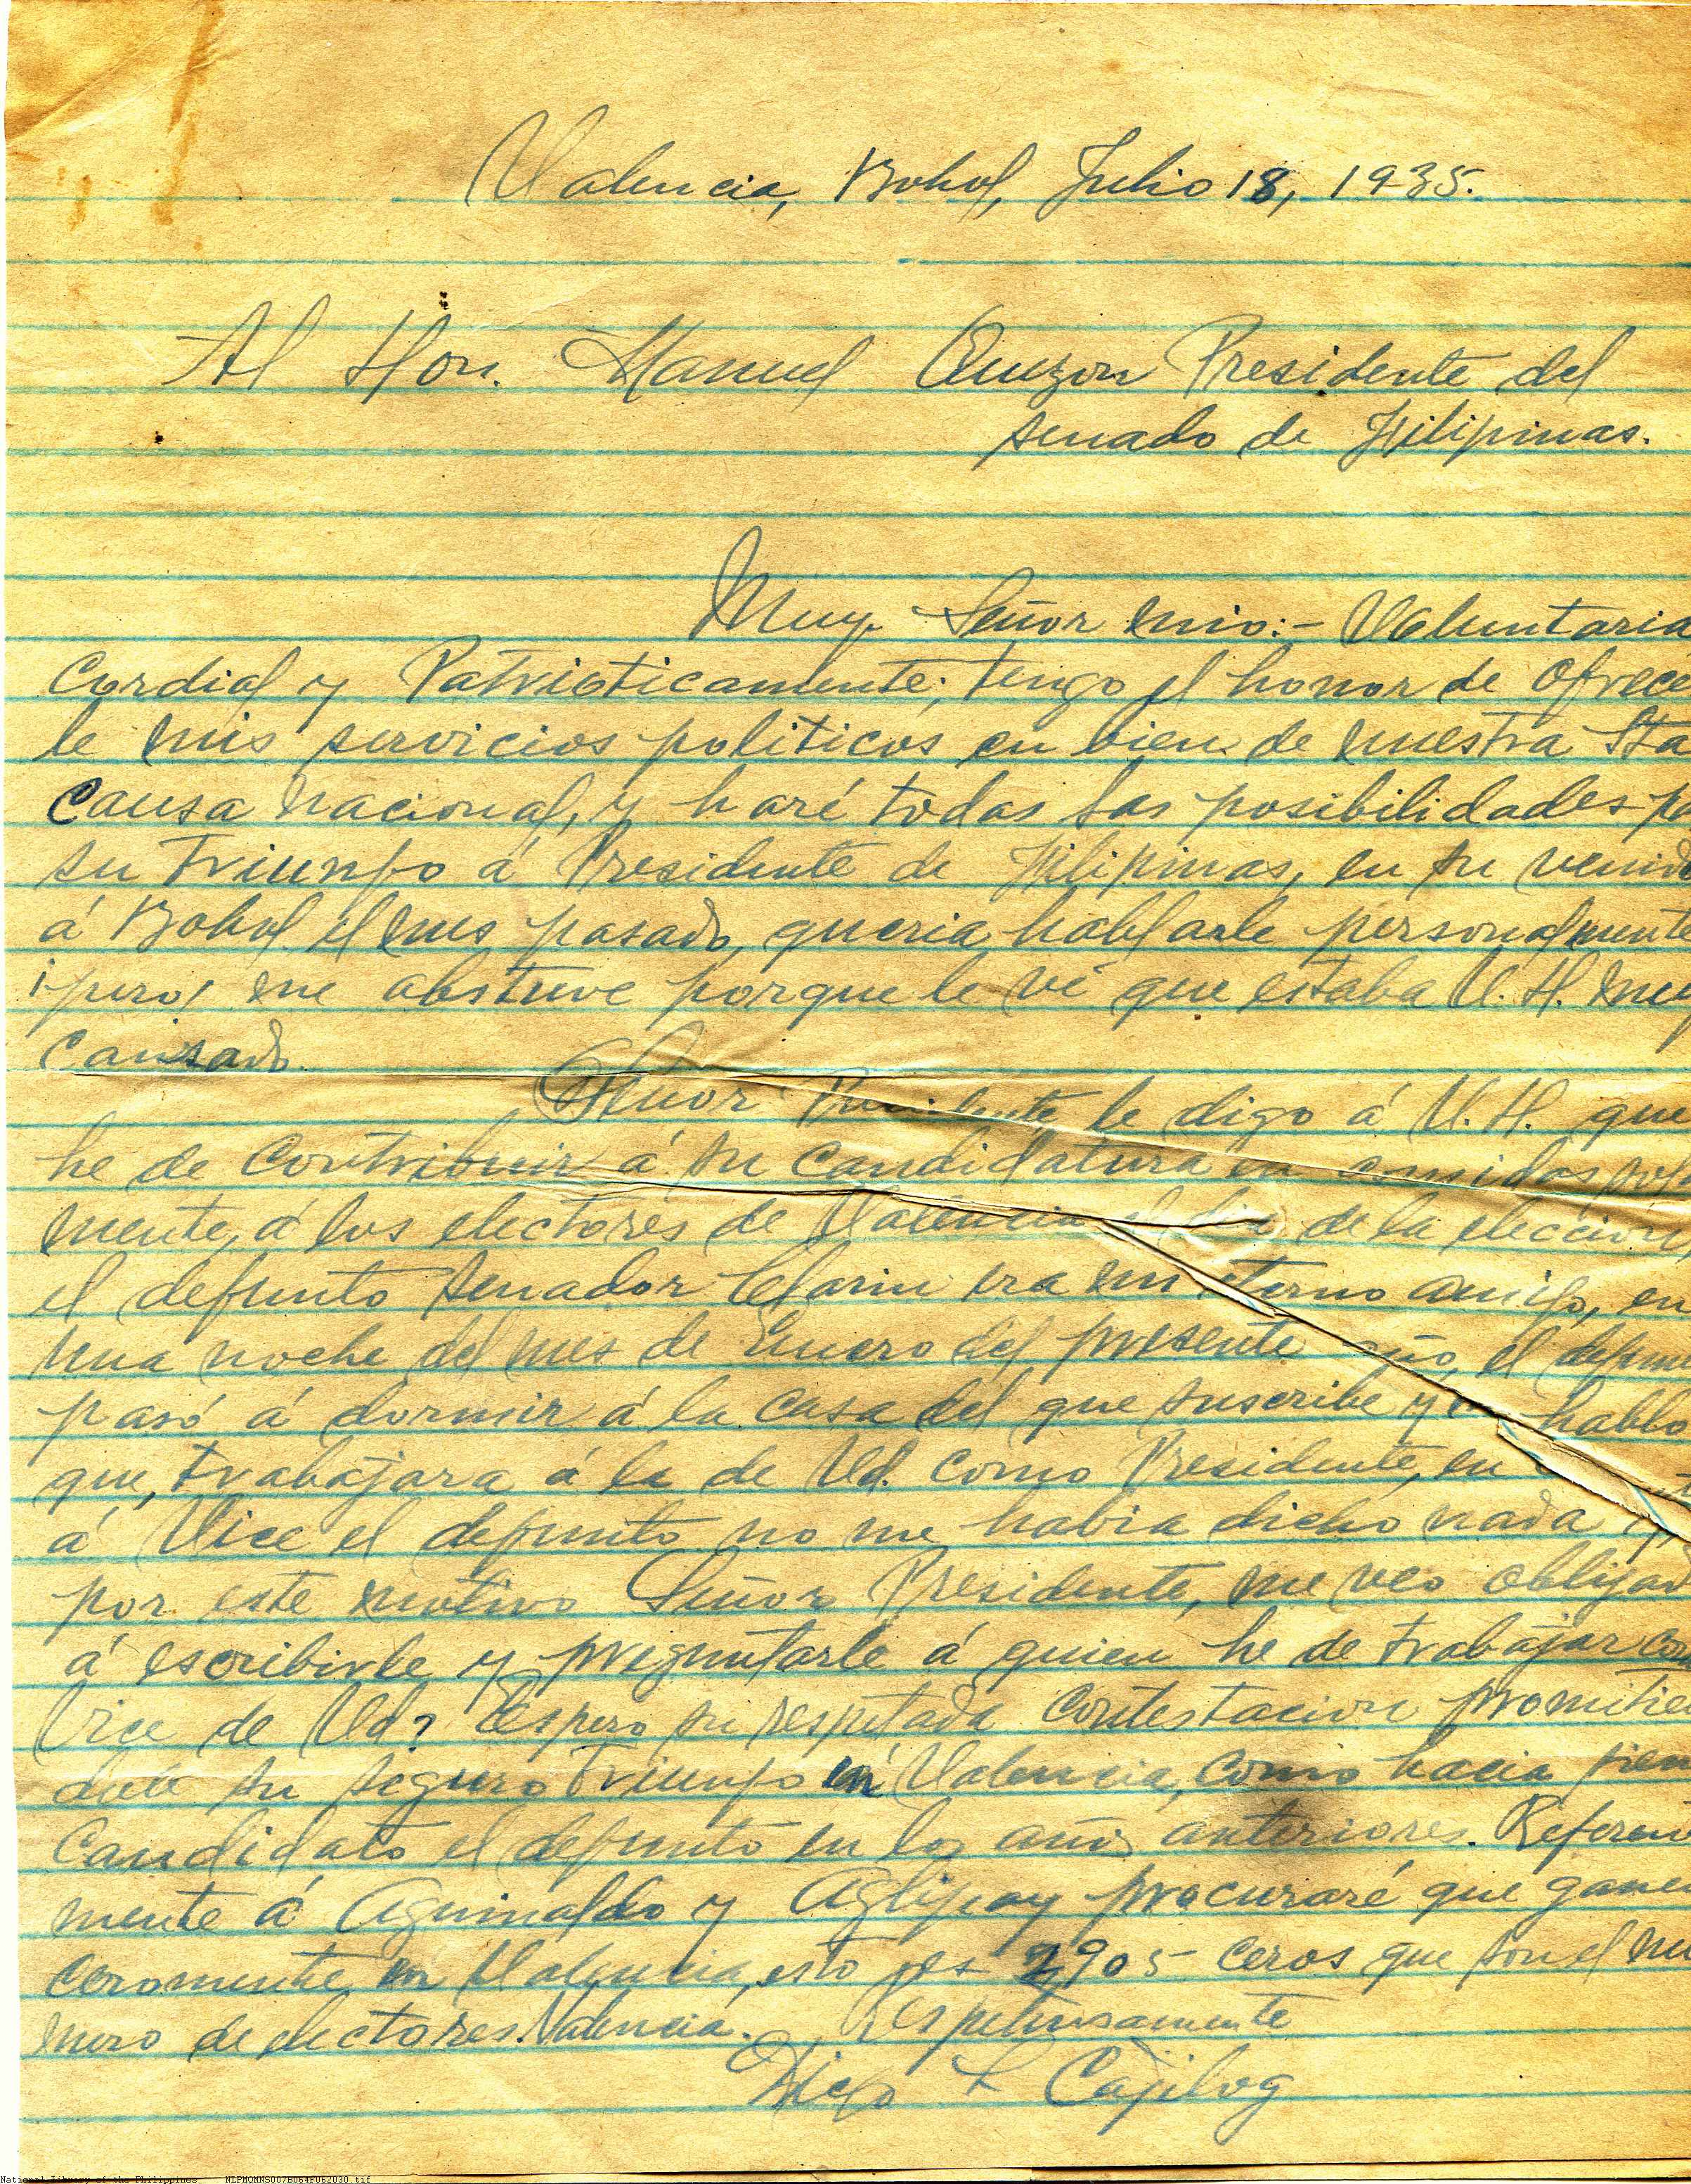 Valencia, Bohol, Julio 18, 1935.
Al Hon. Manuel Quezon Presidente del
senado de Filipinas.
Muy Señor mio:- Voluntaria
Cordial y Patrioticamente, tengo el honor de Ofrece
le mis servicios politicos en bien de nuestra Sta
Causa nacional, y haré todas las posibilidades pa
su triunfo á Presidente de Filipinas, en su venida
á Bohol el mes pasado, queria hablarle personalmente
¡pero! me abstuve porque le vi que estaba V. H. muy
Cansado.
Señor Presidente le digo á V. H. que
he de Contribuir á su candidatura en comidas sola
mente, á los electores de Valencia el dia de la elección,
el defunto senador Clarin era mi eterno amigo, en
una noche del mes de Enero del presente año, el defun
pasó á dormir á la casa del que suscribe y me hablo
que, trabajara á la de Vd. como Presidente, en
á Vice el defunto no me habia dicho nada y,
por este motivo Señor Presidente, me veo obligad
á escribirle y preguntarle á quien he de trabajar com
Vice de Vd? Espero su respetada Contestacion promitien
dole su seguro triunfo en Valencia, como hacia siem
Candidato el defunto en los años anteriores. Referent
mente á Aguinaldo y Aglipay procuraré que ganen
ceromente en Valencia, esto es 2905 ceros que son el nu
mero de electores. Valencia. Respetuosamente
L Cajilog
National Library of the Philippines NLPMQMNS007B064F062030.tif